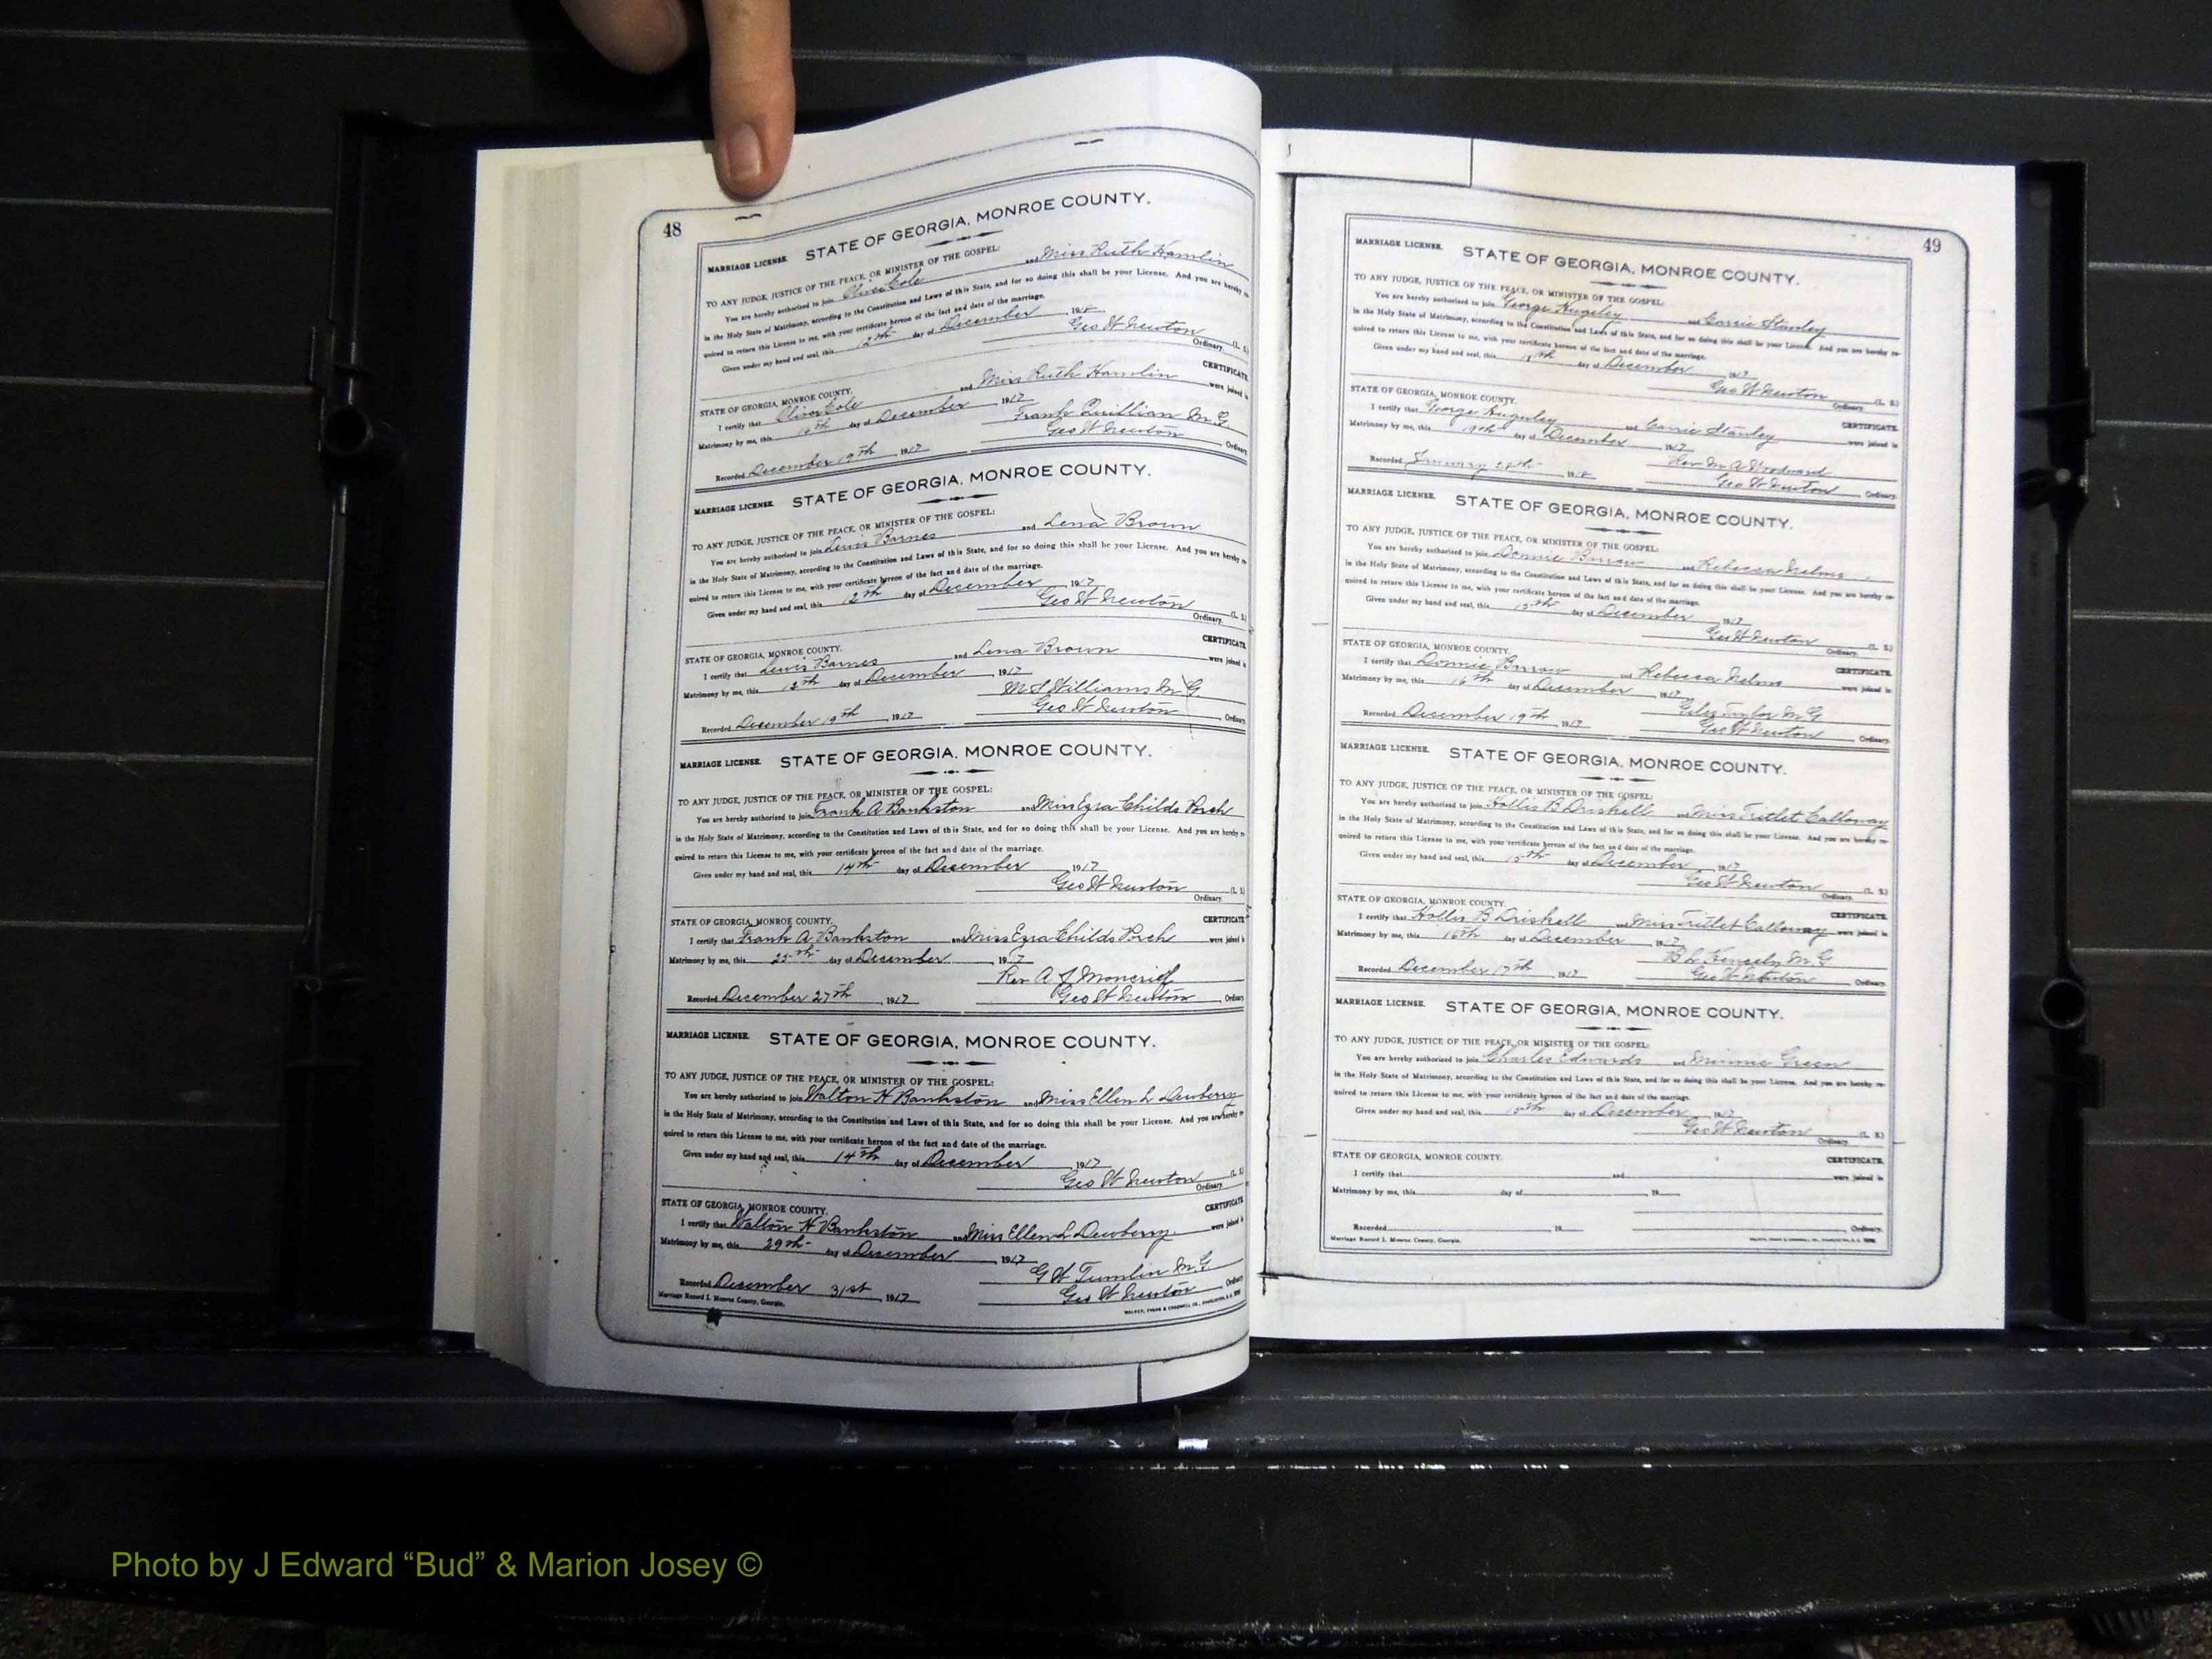 48
MARRIAGE LICENSE. STATE OF GEORGIA, MONROE COUNTY.
TO ANY JUDGE, JUSTICE OF THE PEACE, OR MINISTER OF THE GOSPEL:
You are hereby authorized to join Oliver Cole and Miss Ruth Hamlin
in the Holy State of Matrimony, according to the Constitution and Laws of this State, and for so doing this shall be your License. And you are hereby re-
quired to return this License to me, with your certificate hereon of the fact and date of the marriage.
Given under my hand and seal, this 12th day of December, 191
Geo W Newton (L. S.)
Ordinary.
STATE OF GEORGIA, MONROE COUNTY. CERTIFICATE.
I certify that Oliver Cole and Miss Ruth Hamlin were joined in
Matrimony by me, this 16th day of December, 1917
Frank Quillian M.G
Recorded December 19th, 1917 Geo W Newton, Ordinary
MARRIAGE LICENSE. STATE OF GEORGIA, MONROE COUNTY.
TO ANY JUDGE, JUSTICE OF THE PEACE, OR MINISTER OF THE GOSPEL:
You are hereby authorized to join Lewis Barnes and Lena Brown
in the Holy State of Matrimony, according to the Constitution and Laws of this State, and for so doing this shall be your License. And you are hereby re-
quired to return this License to me, with your certificate hereon of the fact and date of the marriage.
Given under my hand and seal, this 12th day of December, 1917
Geo W Newton (L. S.)
Ordinary.
STATE OF GEORGIA, MONROE COUNTY. CERTIFICATE
I certify that Lewis Barnes and Lena Brown were joined in
Matrimony by me, this 12th day of December, 1917
M S Williams M G
Recorded December 19th, 1917 Geo W Newton, Ordinary
MARRIAGE LICENSE. STATE OF GEORGIA, MONROE COUNTY.
TO ANY JUDGE, JUSTICE OF THE PEACE, OR MINISTER OF THE GOSPEL:
You are hereby authorized to join Frank A Bankston and Miss Ezra Childs Porch
in the Holy State of Matrimony, according to the Constitution and Laws of this State, and for so doing this shall be your License. And you are hereby re-
quired to return this License to me, with your certificate hereon of the fact and date of the marriage.
Given under my hand and seal, this 14th day of December, 1917
Geo W Newton (L. S.)
Ordinary.
STATE OF GEORGIA, MONROE COUNTY. CERTIFICATE
I certify that Frank A. Bankston and Miss Ezra Childs Porch were joined in
Matrimony by me, this 25th day of December, 1917
Rev A J Moncrief
Recorded December 27th, 1917 Geo W Newton, Ordinary
MARRIAGE LICENSE. STATE OF GEORGIA, MONROE COUNTY.
TO ANY JUDGE, JUSTICE OF THE PEACE, OR MINISTER OF THE GOSPEL:
You are hereby authorized to join Walton H Bankston and Miss Ellen L Dewberry
in the Holy State of Matrimony, according to the Constitution and Laws of this State, and for so doing this shall be your License. And you are hereby re-
quired to return this License to me, with your certificate hereon of the fact and date of the marriage.
Given under my hand and seal, this 14th day of December, 1917
Geo W Newton (L. S.)
Ordinary.
STATE OF GEORGIA, MONROE COUNTY. CERTIFICATE
I certify that Walton H Bankston and Miss Ellen L Dewberry were joined in
Matrimony by me, this 29th day of December, 1917
G W Tumlin M.G
Recorded December 31st, 1917 Geo W Newton, Ordinary
Marriage Record I. Monroe County, Georgia.
49
MARRIAGE LICENSE. STATE OF GEORGIA, MONROE COUNTY.
TO ANY JUDGE, JUSTICE OF THE PEACE, OR MINISTER OF THE GOSPEL:
You are hereby authorized to join George Huguley and Carrie Stanley
in the Holy State of Matrimony, according to the Constitution and Laws of this State, and for so doing this shall be your License. And you are hereby re-
quired to return this License to me, with your certificate hereon of the fact and date of the marriage.
Given under my hand and seal, this day of December, 1917
Geo W Newton (L. S.)
Ordinary.
STATE OF GEORGIA, MONROE COUNTY. CERTIFICATE.
I certify that George Huguley and Carrie Stanley were joined in
Matrimony by me, this 19th day of December, 1917
Rev M A Woodward
Recorded January 28th, 1918 Geo W Newton, Ordinary
MARRIAGE LICENSE. STATE OF GEORGIA, MONROE COUNTY.
TO ANY JUDGE, JUSTICE OF THE PEACE, OR MINISTER OF THE GOSPEL:
You are hereby authorized to join Donnie Barrow and Rebecca Nelms
in the Holy State of Matrimony, according to the Constitution and Laws of this State, and for so doing this shall be your License. And you are hereby re-
quired to return this License to me, with your certificate hereon of the fact and date of the marriage.
Given under my hand and seal, this 15th day of December, 1917
Geo W Newton (L. S.)
Ordinary.
STATE OF GEORGIA, MONROE COUNTY. CERTIFICATE
I certify that Donnie Barrow and Rebecca Nelms were joined in
Matrimony by me, this 16th day of December, 1917
Giles Taylor M.G
Recorded December 19th, 1917 Geo W Newton, Ordinary.
MARRIAGE LICENSE. STATE OF GEORGIA, MONROE COUNTY.
TO ANY JUDGE, JUSTICE OF THE PEACE, OR MINISTER OF THE GOSPEL:
You are hereby authorized to join Hollis B Driskell and Miss Tritlet Calloway
in the Holy State of Matrimony, according to the Constitution and Laws of this State, and for so doing this shall be your License. And you are hereby re-
quired to return this License to me, with your certificate hereon of the fact and date of the marriage.
Given under my hand and seal, this 15th day of December, 1917
Geo W Newton (L. S.)
Ordinary.
STATE OF GEORGIA, MONROE COUNTY. CERTIFICATE
I certify that Hollis B Driskell and Miss Tritlet Calloway were joined in
Matrimony by me, this 16th day of December, 1917
M.G
Recorded December 17th, 1917 Geo W Newton, Ordinary.
MARRIAGE LICENSE. STATE OF GEORGIA, MONROE COUNTY.
TO ANY JUDGE, JUSTICE OF THE PEACE, OR MINISTER OF THE GOSPEL:
You are hereby authorized to join Charles Edwards and Minnie Green
in the Holy State of Matrimony, according to the Constitution and Laws of this State, and for so doing this shall be your License. And you are hereby re-
quired to return this License to me, with your certificate hereon of the fact and date of the marriage.
Given under my hand and seal, this 15th day of December, 1917
Geo W Newton (L. S.)
Ordinary.
STATE OF GEORGIA, MONROE COUNTY. CERTIFICATE.
I certify that and were joined in
Matrimony by me, this day of , 19
Recorded , 19 , Ordinary.
Marriage Record I. Monroe County, Georgia.
Photo by J Edward “Bud” & Marion Josey ©